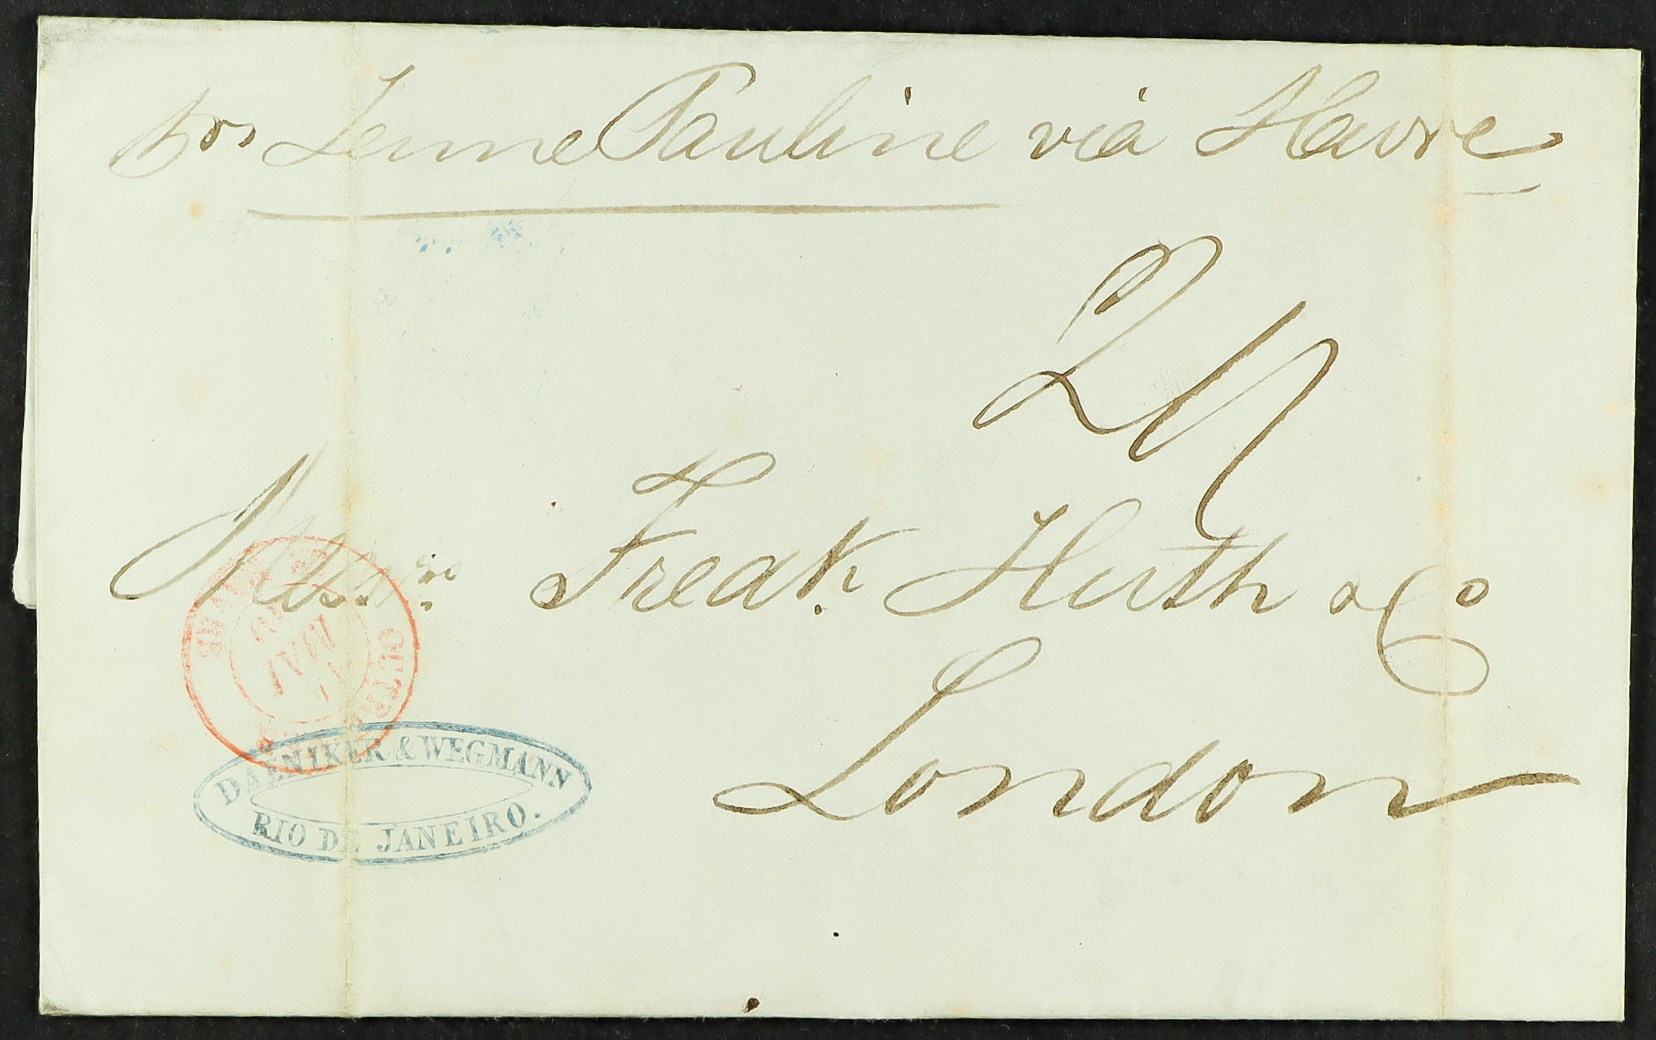 por Jeune Pauline via Havre
2/1
Messrs Fredk Huth & Co
London
OUTRE
MAI
DAENIKER & WEGMANN
RIO DE JANEIRO.